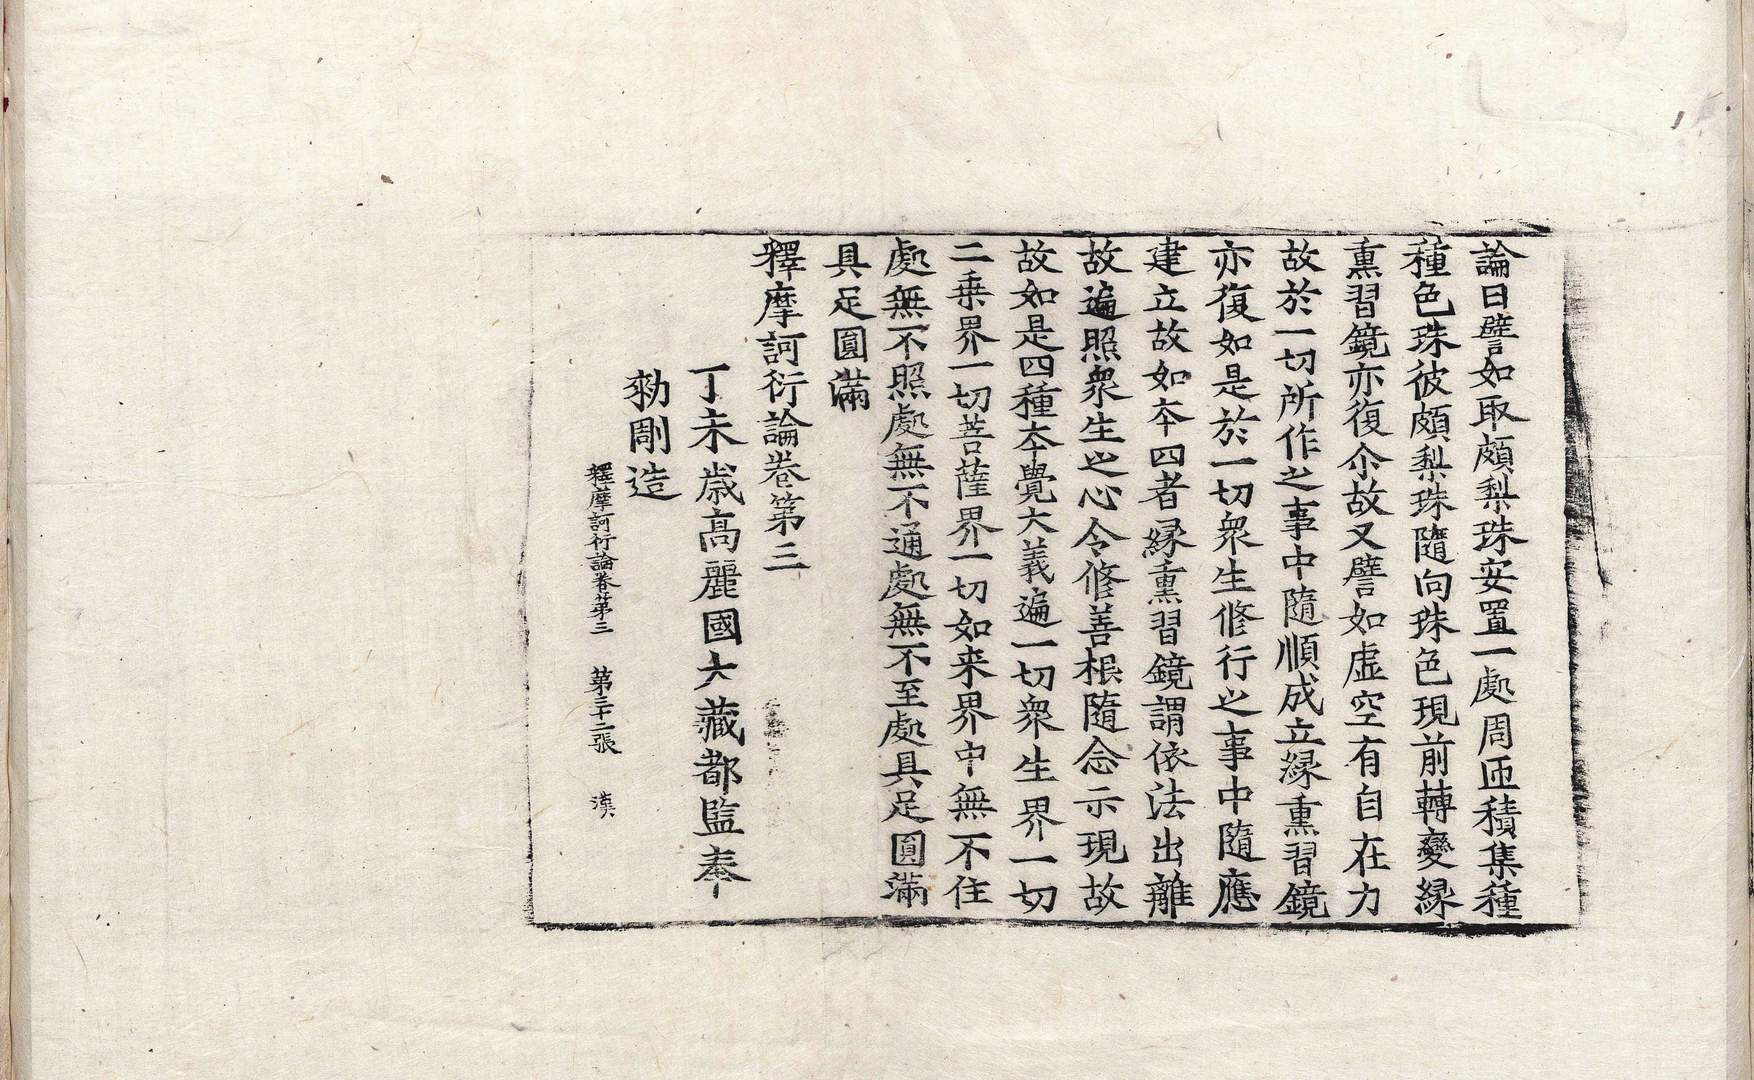 論曰譬如取頗梨珠安置一處周匝積集種
種色珠彼頗梨珠隨向珠色現前轉變縁
熏習鏡亦復尒故又譬如虛空有自在力
故於一切所作之事中隨順成立縁熏習鏡
亦復如是於一切衆生修行之事中隨應
建立故如夲四者縁熏習鏡謂依法出離
故遍照衆生之心令修善根隨念示現故
故如是四種夲覺大義遍一切衆生界一切
二乗界一切菩薩界一切如来界中無不住
處無不照處無不通處無不至處具足圓滿
具足圓滿
釋摩訶衍論卷第三
丁未歳高麗國大藏都監奉
勑彫造
釋摩訶衍論卷第三 第三十二張 漢